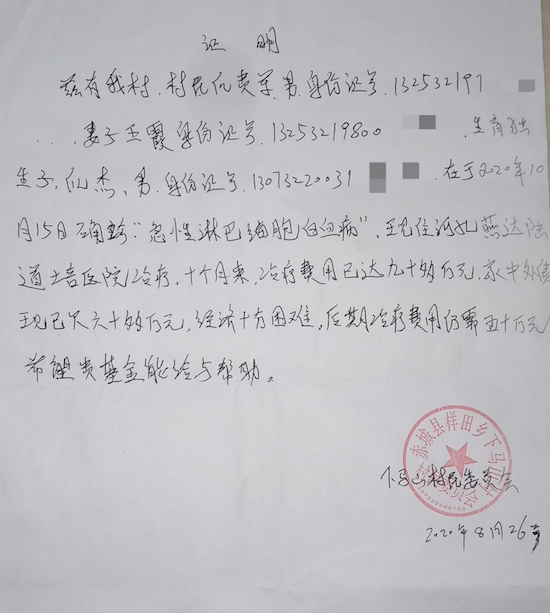 证 明
兹有我村,村民仉贵军.男.身份证号.132532197
妻子王霞身份证号.13253219800 生有独
生子,仉杰、男.身份证号.1307322003 .在于2020年10
月15日确珍“急性淋巴细胞白血病”、现住河北燕达陆
道培医院治疗,十个月来,治疗费用已达九十多万元,家中外债
现已欠六十多万元,经济十分困难,后期治疗费用仍需五十万元
希望贵基金能给与帮助。
赤城县样田乡下马山村
村民委员会
下马山村民委员会
2020年8月26号